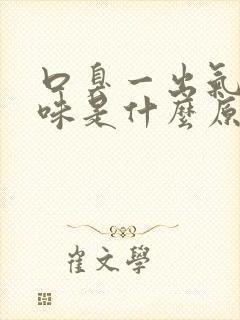 口臭一出氣
味是什麼原
崔文學